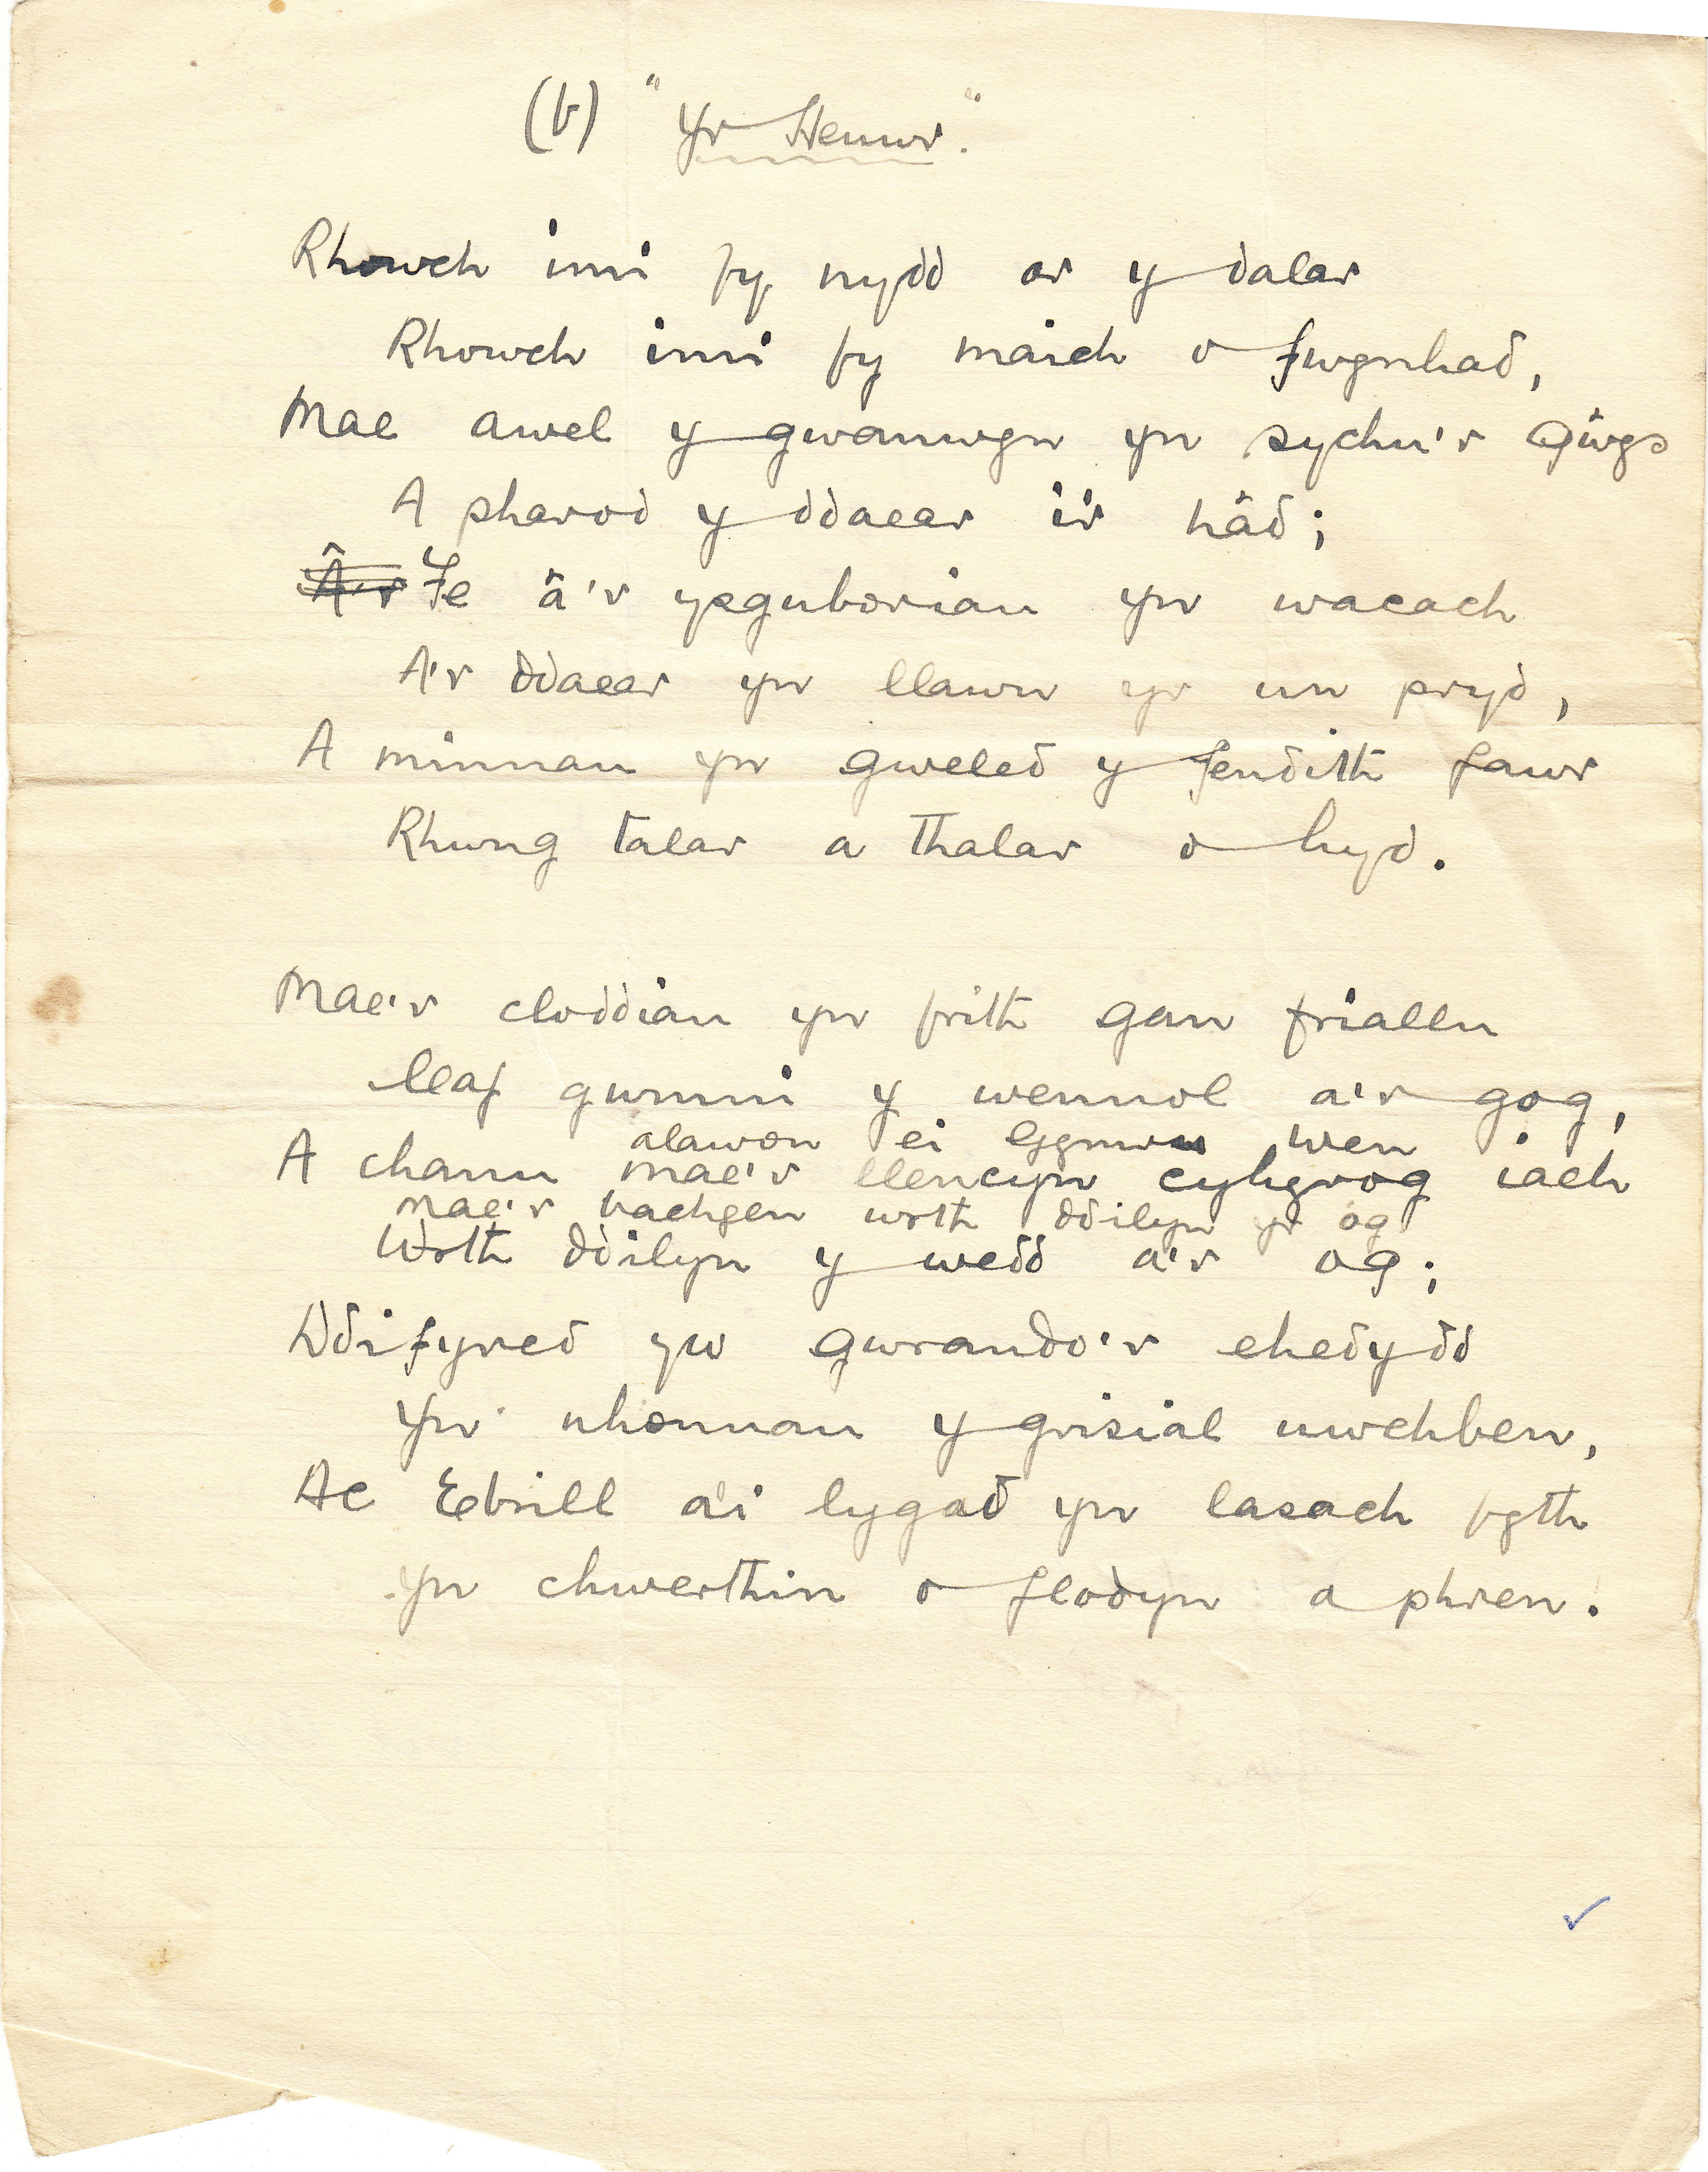 (b) "Yr Heuwr".
Rhowch imi fy nydd ar y dalar
Rhowch imi fy maich o fwynhad,
Mae awel y gwanwyn yn sychu'r gŵys
A pharod y ddaear i'r hâd;
Â'r Fe â'r ysguboriau yn wacach
A'r ddaear yn llawn yr un pryd,
A minnau yn gweled y fendith fawr
Rhwng talar a thalar o hyd.
Mae'r cloddiau yn frith gan friallu
Caf gwmni y wennol a'r gog,
alawon ei wen
A chanu mae'r llencyn cyhyrog iach
Mae'r bachgen wrth ddilyn yr og
Wrth ddilyn y wedd a'r og;
Ddifyred yw gwrando'r ehedydd
Yn nhonnau y grisial uwchben,
Ac Ebrill a'i lygad yn lasach fyth
Yn chwerthin o flodyn a phren.